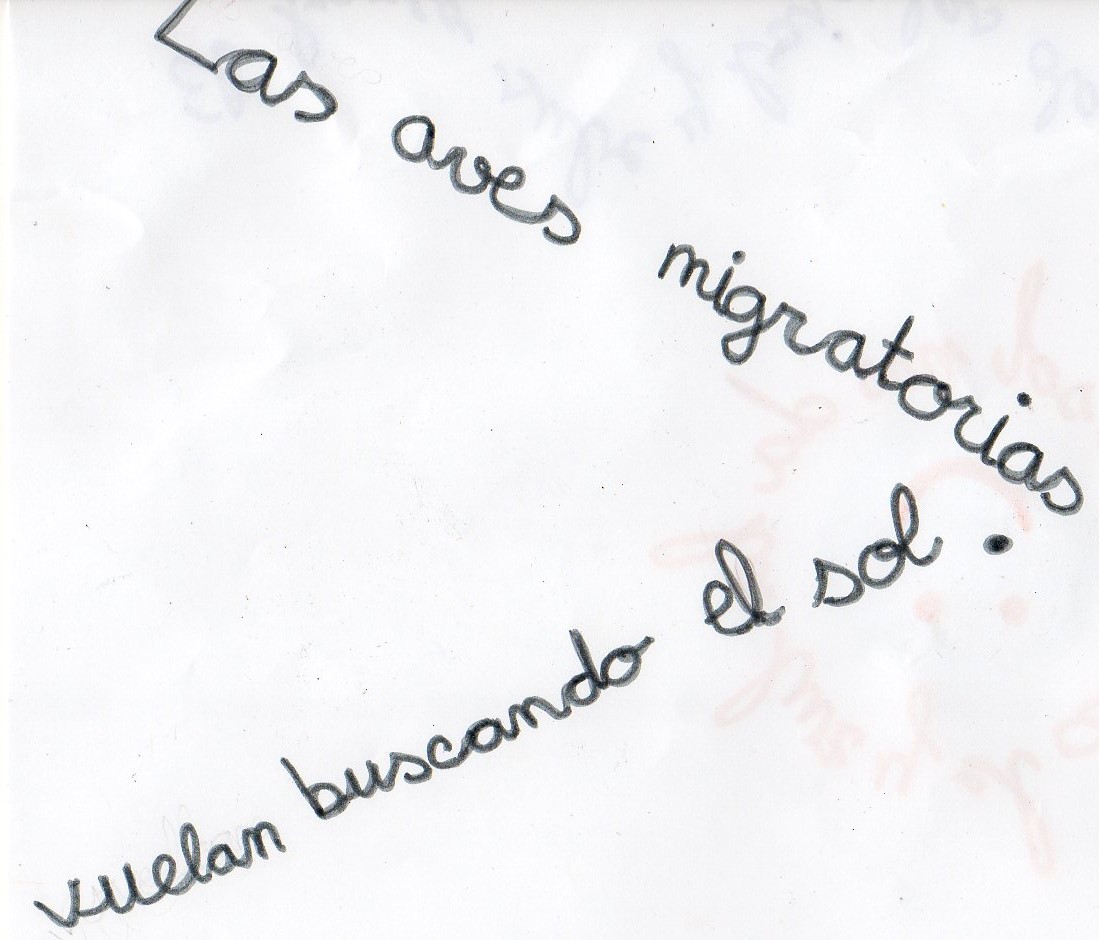 Las aves migratorias
vuelan buscando el sol.